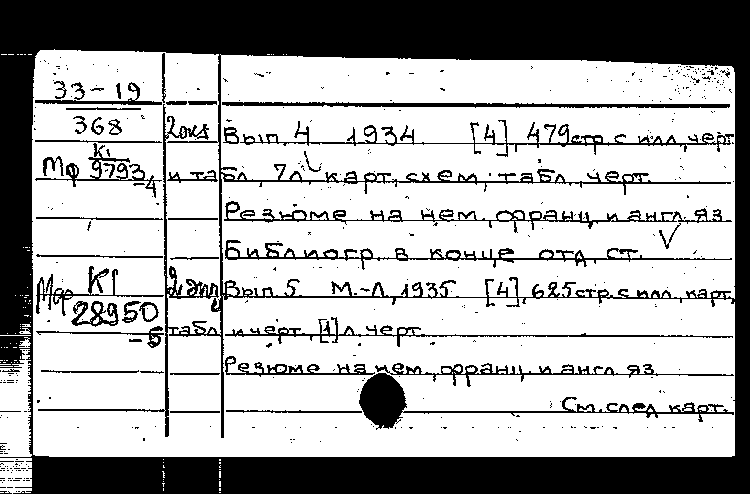 33-19
368
2экз Вып. 4 1934. [4], 479 стр. с илл., черт
Мф К1 9793-4 и табл., 7л. карт, схем, табл., черт.
Резюме на нем., франц. и англ. яз
Библиогр. в конце отд. ст.
К1 28950-5 Вып. 5. М.-Л., 1935. [4], 625 стр. с илл., карт,
табл и черт., [1] л. черт.
Резюме на нем., франц. и англ. яз
См. след карт.